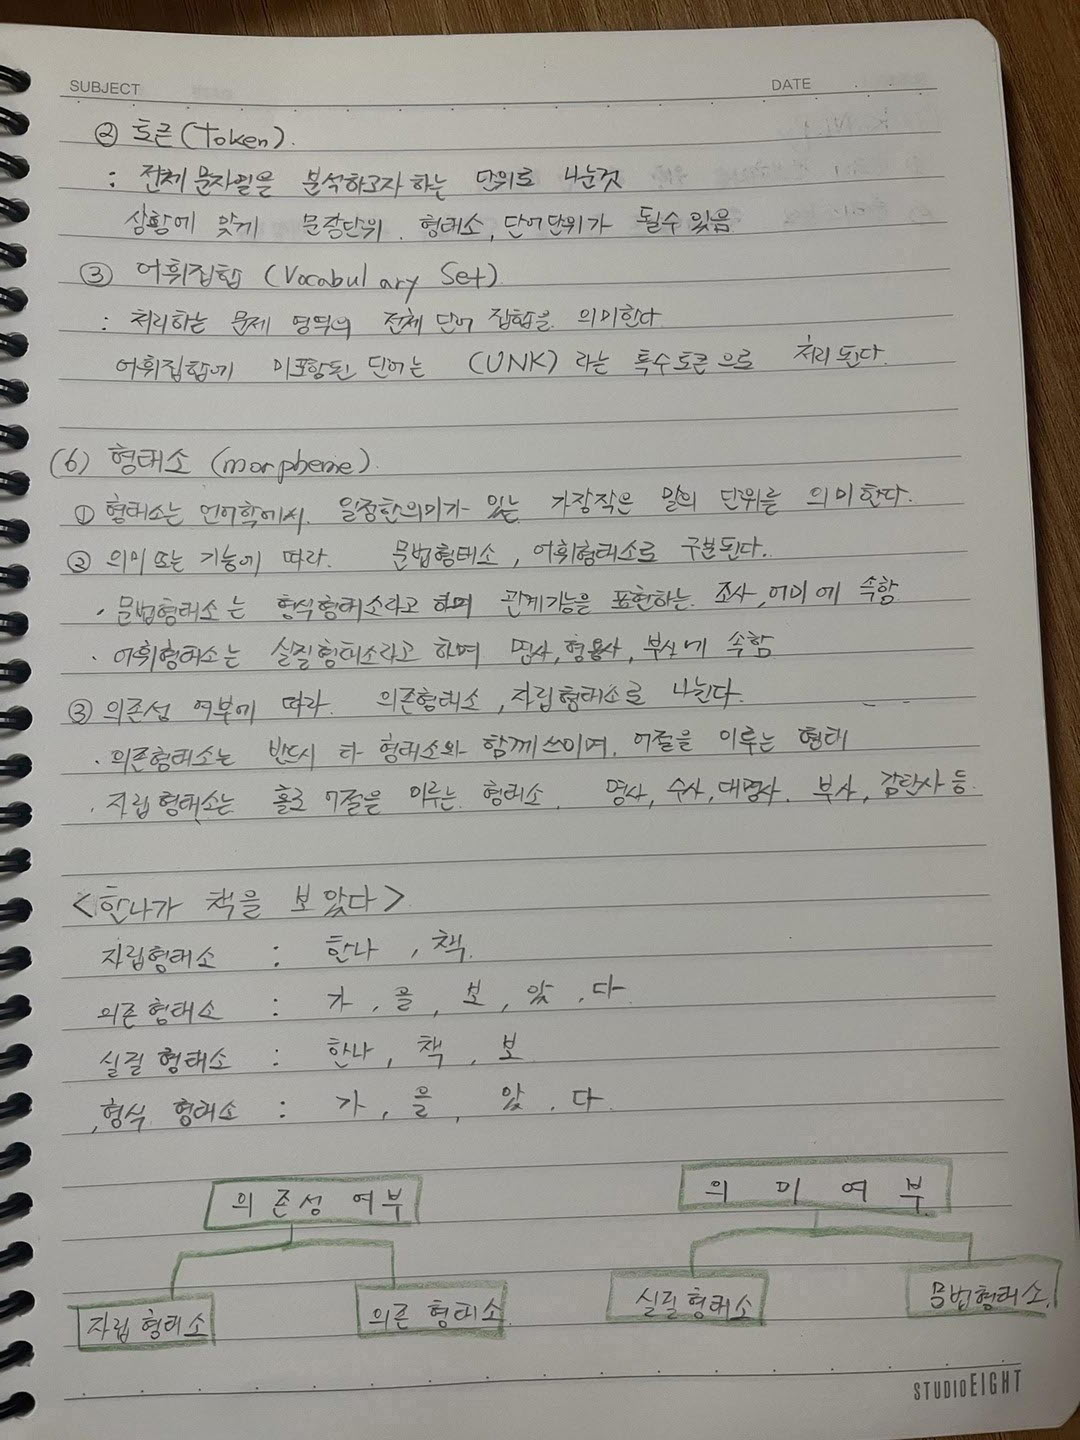 SUBJECT DATE
② 토큰(Token).
: 전체 문자열을 분석하고자 하는 단위로 나눈것
상황에 맞게 문장단위. 형태소, 단어단위가 될수 있음
③ 어휘집합 (Vocabulary Set)
: 처리하는 문제 영역의 전체 단어 집합을 의미한다
어휘집합에 미포함된 단어는 (UNK) 라는 특수토큰으로 처리된다.
(6) 형태소 (morpheme).
① 형태소는 언어학에서. 일정한의미가 있는 가장작은 말의 단위를 의미한다.
② 의미또는 기능에 따라. 문법형태소, 어휘형태소로 구분된다.
· 문법형태소는 형식형태소라고 하며 관계기능을 표현하는 조사,어미에 속함
· 어휘형태소는 실질형태소라고 하며 명사,형용사, 부사에 속함
③ 의존성 여부에 따라. 의존형태소, 자립형태소로 나뉜다.
· 의존형태소는 반드시 타 형태소와 함께쓰이며. 어절을 이루는 형태
· 자립형태소는 홀로 어절을 이루는 형태소. 명사, 수사,대명사. 부사, 감탄사 등.
<한나가 책을 보았다>
자립형태소 : 한나, 책.
의존형태소 : 가, 을, 보, 았, 다.
실질형태소 : 한나, 책, 보
형식 형태소 : 가, 을, 았, 다.
의존성 여부 의미여부
자립 형태소 의존 형태소 실질형태소 문법형태소.
STUDIOEIGHT